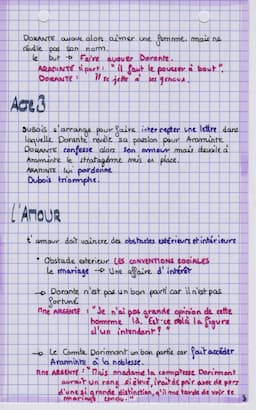 DORANTE avoue alors aimer une femme mais ne
dévoile pas son nom.
le but → Faire avouer Dorante.
ARAMINTE à part : "il faut le pousser à bout".
DORANTE : Il se jette à ses genoux.
ACTE 3
DUBOIS s'arrange pour faire intercepter une lettre dans
laquelle Dorante révèle sa passion pour Araminte.
DORANTE confesse alors son amour mais dévoile à
Araminte le stratagème mis en place.
ARAMINTE lui pardonne
Dubois triomphe.
L'AMOUR
L'amour doit vaincre des obstacles extérieurs et intérieurs
• Obstacle extérieur LES CONVENTIONS SOCIALES
le mariage → Une affaire d'intérêt
→ Dorante n'est pas un bon parti car il n'est pas
fortuné
Mme ARGENTE : "Je n'ai pas grande opinion de cette
homme là. Est-ce là la figure
d'un intendant ?"
→ Le Comte Dorimont un bon parti car fait accéder
Araminte à la noblesse
Mme ARGENTE : "Mais madame la comtesse Dorimont
aurait un rang si élevé, irait de pair avec de pers
d'une si grande distinction, qu'il me tarde de voir ce
mariage conclu."